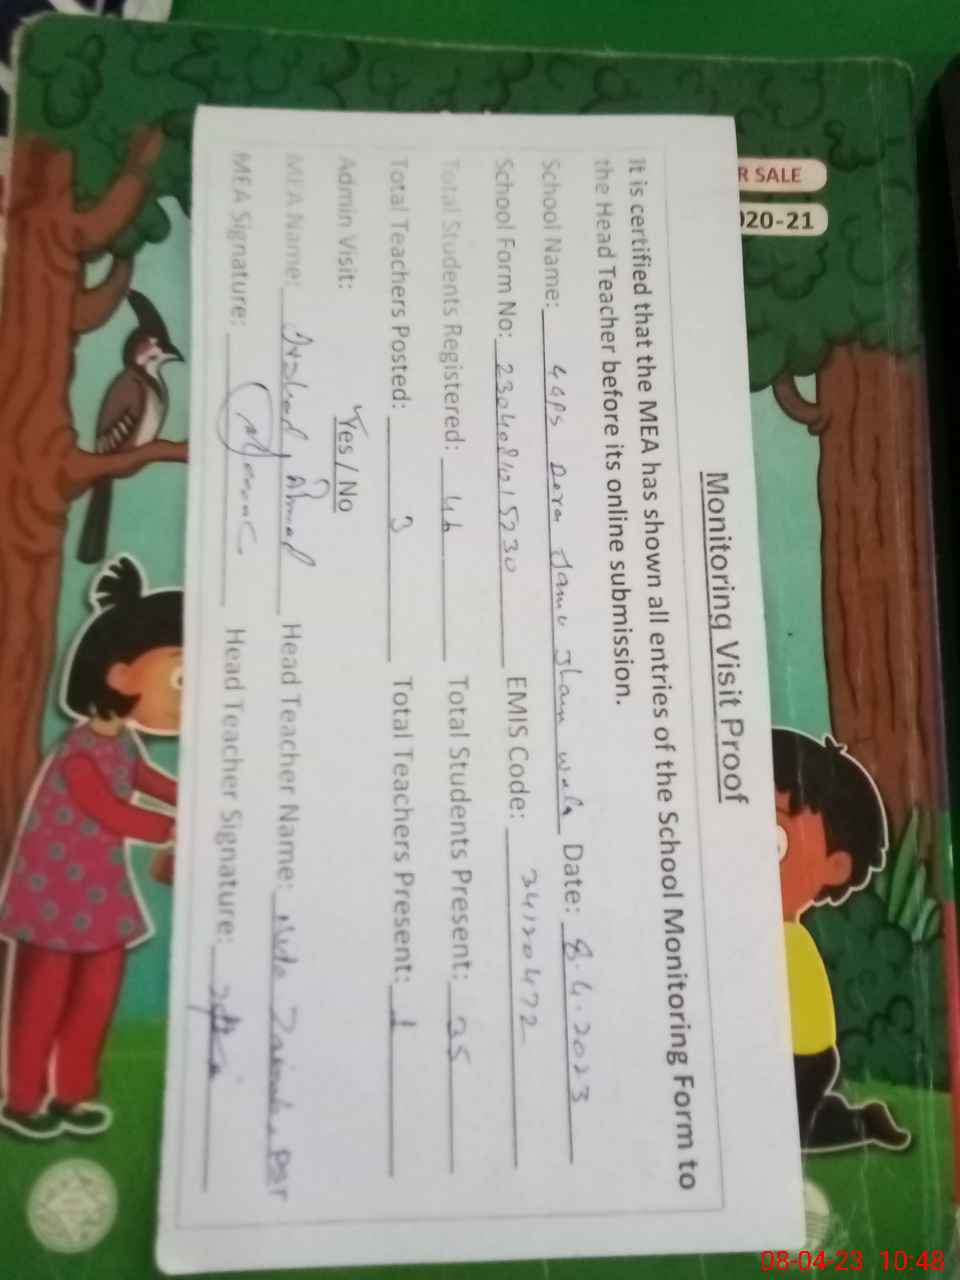 R SALE
020-21
Monitoring Visit Proof
It is certified that the MEA has shown all entries of the School Monitoring Form to
the Head Teacher before its online submission.
School Name: GGPS Dera Date: 8.4.2023
School Form No: EMIS Code: 34120472
Total Students Registered: 46 Total Students Present: 35
Total Teachers Posted: 3 Total Teachers Present: 1
Admin Visit: Yes / No
MEA Name: Arshad Ahmad Head Teacher Name: PST
MEA Signature: Head Teacher Signature:
08-04-23 10:48